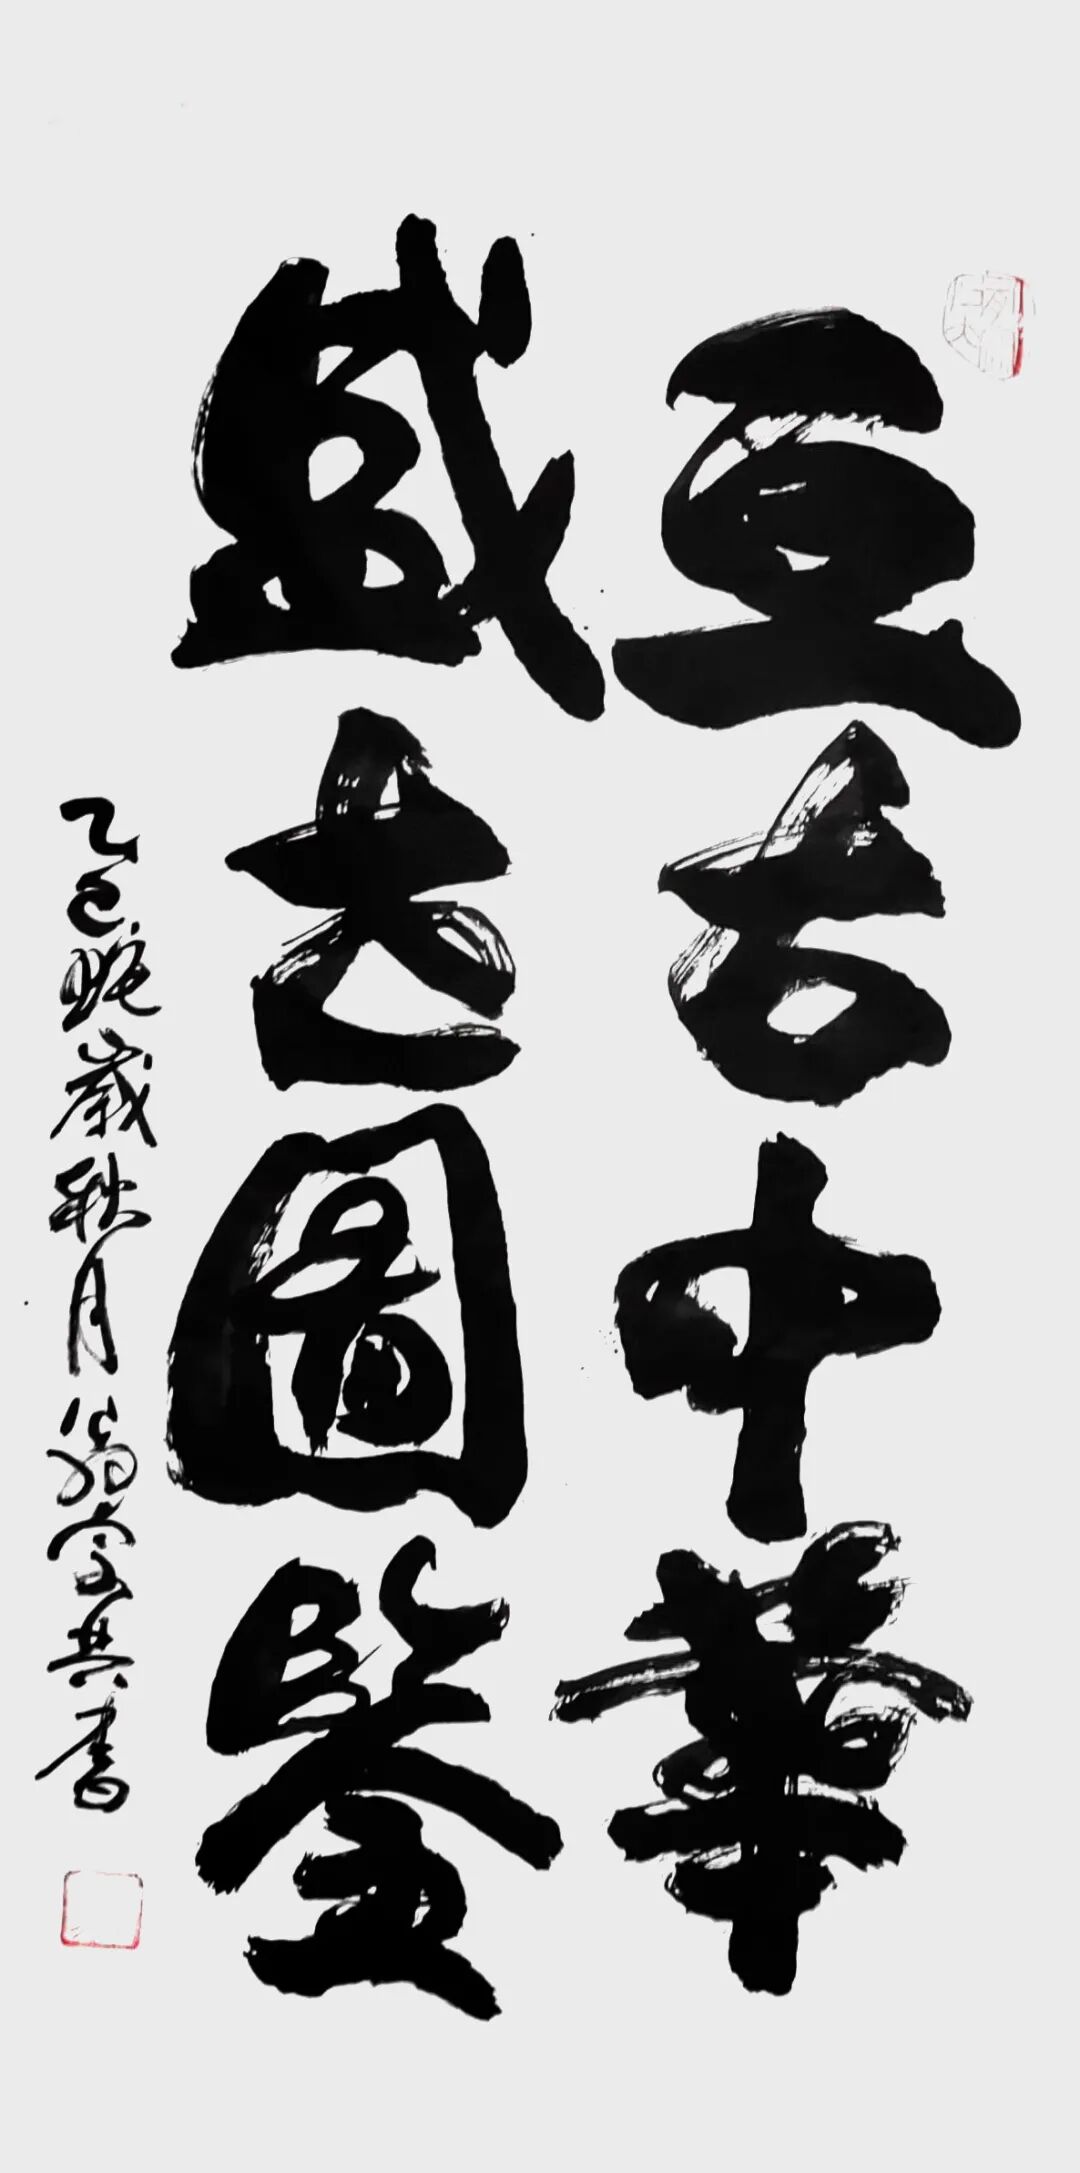 亘古中華
盛世圖鉴
乙巳蛇歲秋月翁書